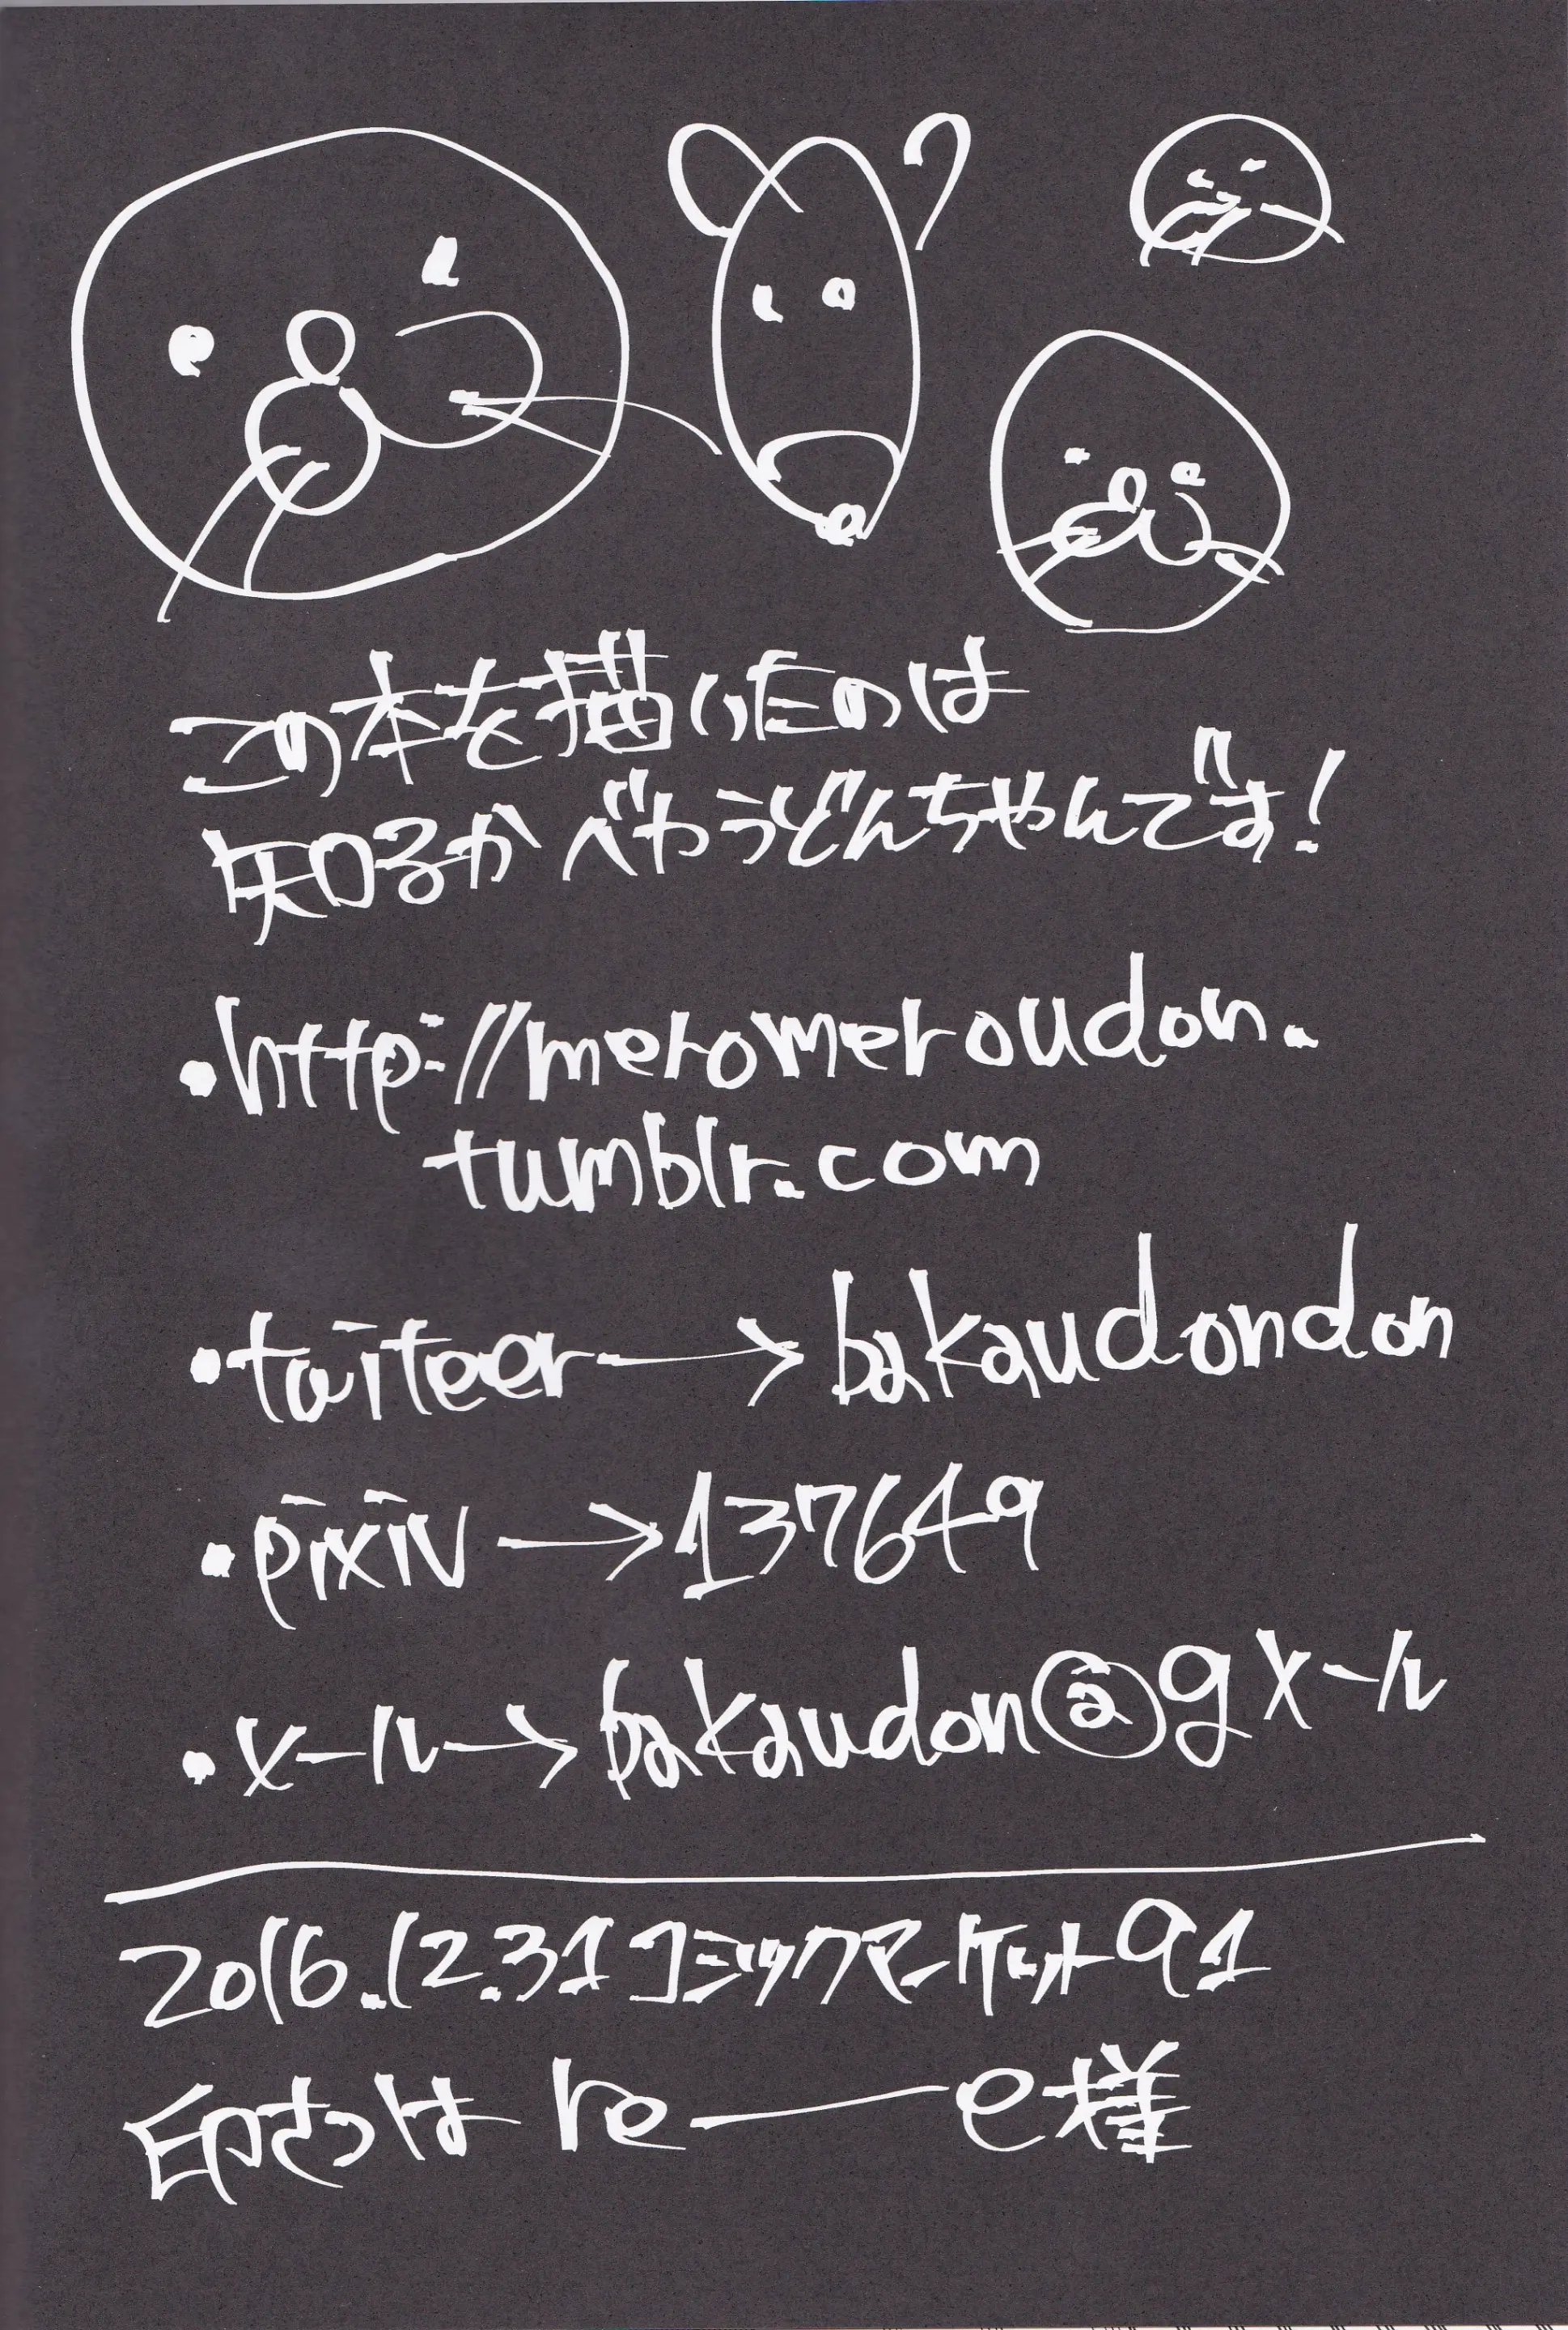 この本を描いたのは
知るかバゕうどんちゃんです!
・http://meromeroudon.
tumblr.com
・taiteer→bakaudondon
・pixiv→137649
・メール→bakaudon@gメール
2016.12.31コミックマーケット91
印さつは re―e様